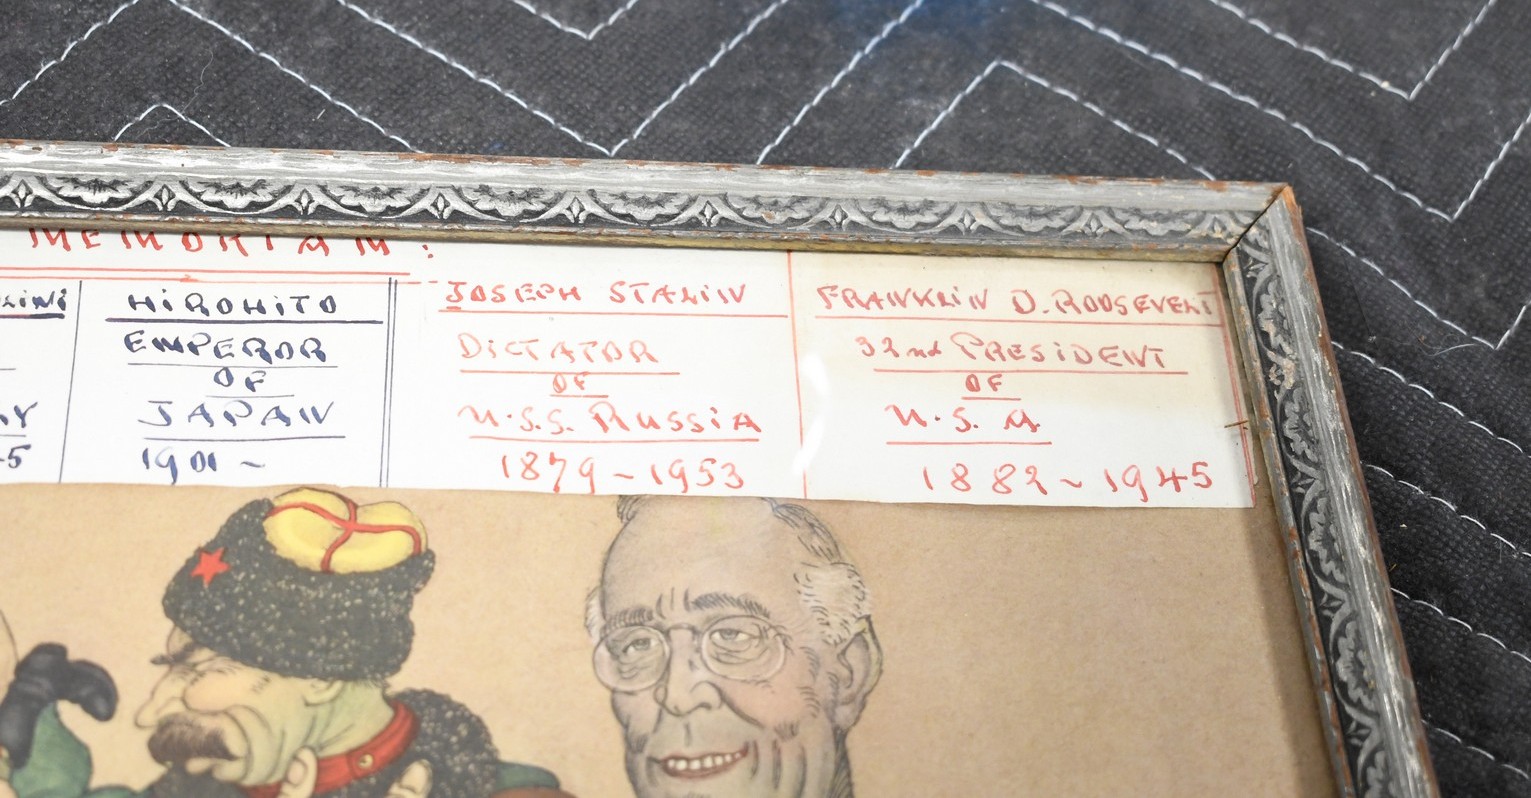 MEMORIAM:
HIROHITO
EMPEROR
OF
JAPAN
1901 ~
JOSEPH STALIN
DICTATOR
OF
U.S.S. RUSSIA
1879 ~ 1953
FRANKLIN D. ROOSEVELT
32nd PRESIDENT
OF
U.S.A
1882 ~ 1945